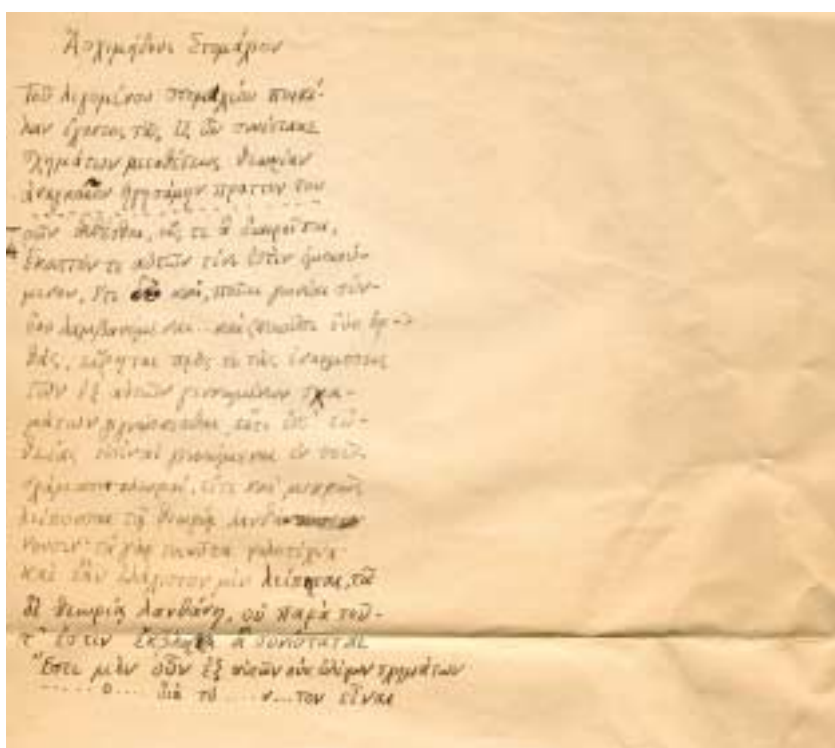 Ἀρχιμήδους Στομάχιον
Τοῦ λεγομένου στομαχίου ποικί-
λαν ἔχοντος τᾶς ἐξ ὧν συνέστακε
σχημάτων μεταθέσεως θεωρίαν
ἀναγκαῖον ἡγησάμην πρῶτον του
οῦν ἐκθέσθαι, εἴς τε ἃ διαιρεῖται,
ἕκαστόν τε αὐτῶν τίνι ἐστὶν ὁμοιού-
μενον, ἔτι δὲ καί, ποῖαι γωνίαι σύν-
δυο λαμβανόμεναι καὶ ὀρ-
θάς, εἴρηται πρὸς τὸ τὰς ἐναρμόσεις
τῶν ἐξ αὐτῶν γεννωμένων σχη-
μάτων γιγνώσκεσθαι, εἴτε ἐπ' εὐ-
θείας εἰσὶν αἱ γεννώμεναι ἐν τοῖς
σχήμασι πλευραί, εἴτε καὶ μικρῶς
λείπουσαι τᾷ θεωρίᾳ λανθά
νουσιν· τὰ γὰρ τοιαῦτα φιλότεχνα·
καὶ ἐὰν ἐλάχιστον μὲν λείπηται, τᾷ
δὲ θεωρίᾳ λανθάνῃ, οὐ παρὰ τοῦ-
τ' ἐστιν ἔκβλητα ἃ συνίσταται.
Ἔστι μὲν οὖν ἐξ αὐτῶν οὐκ ὀλίγων σχημάτων
..... ο... διὰ τὸ .... ν...τον εἶναι